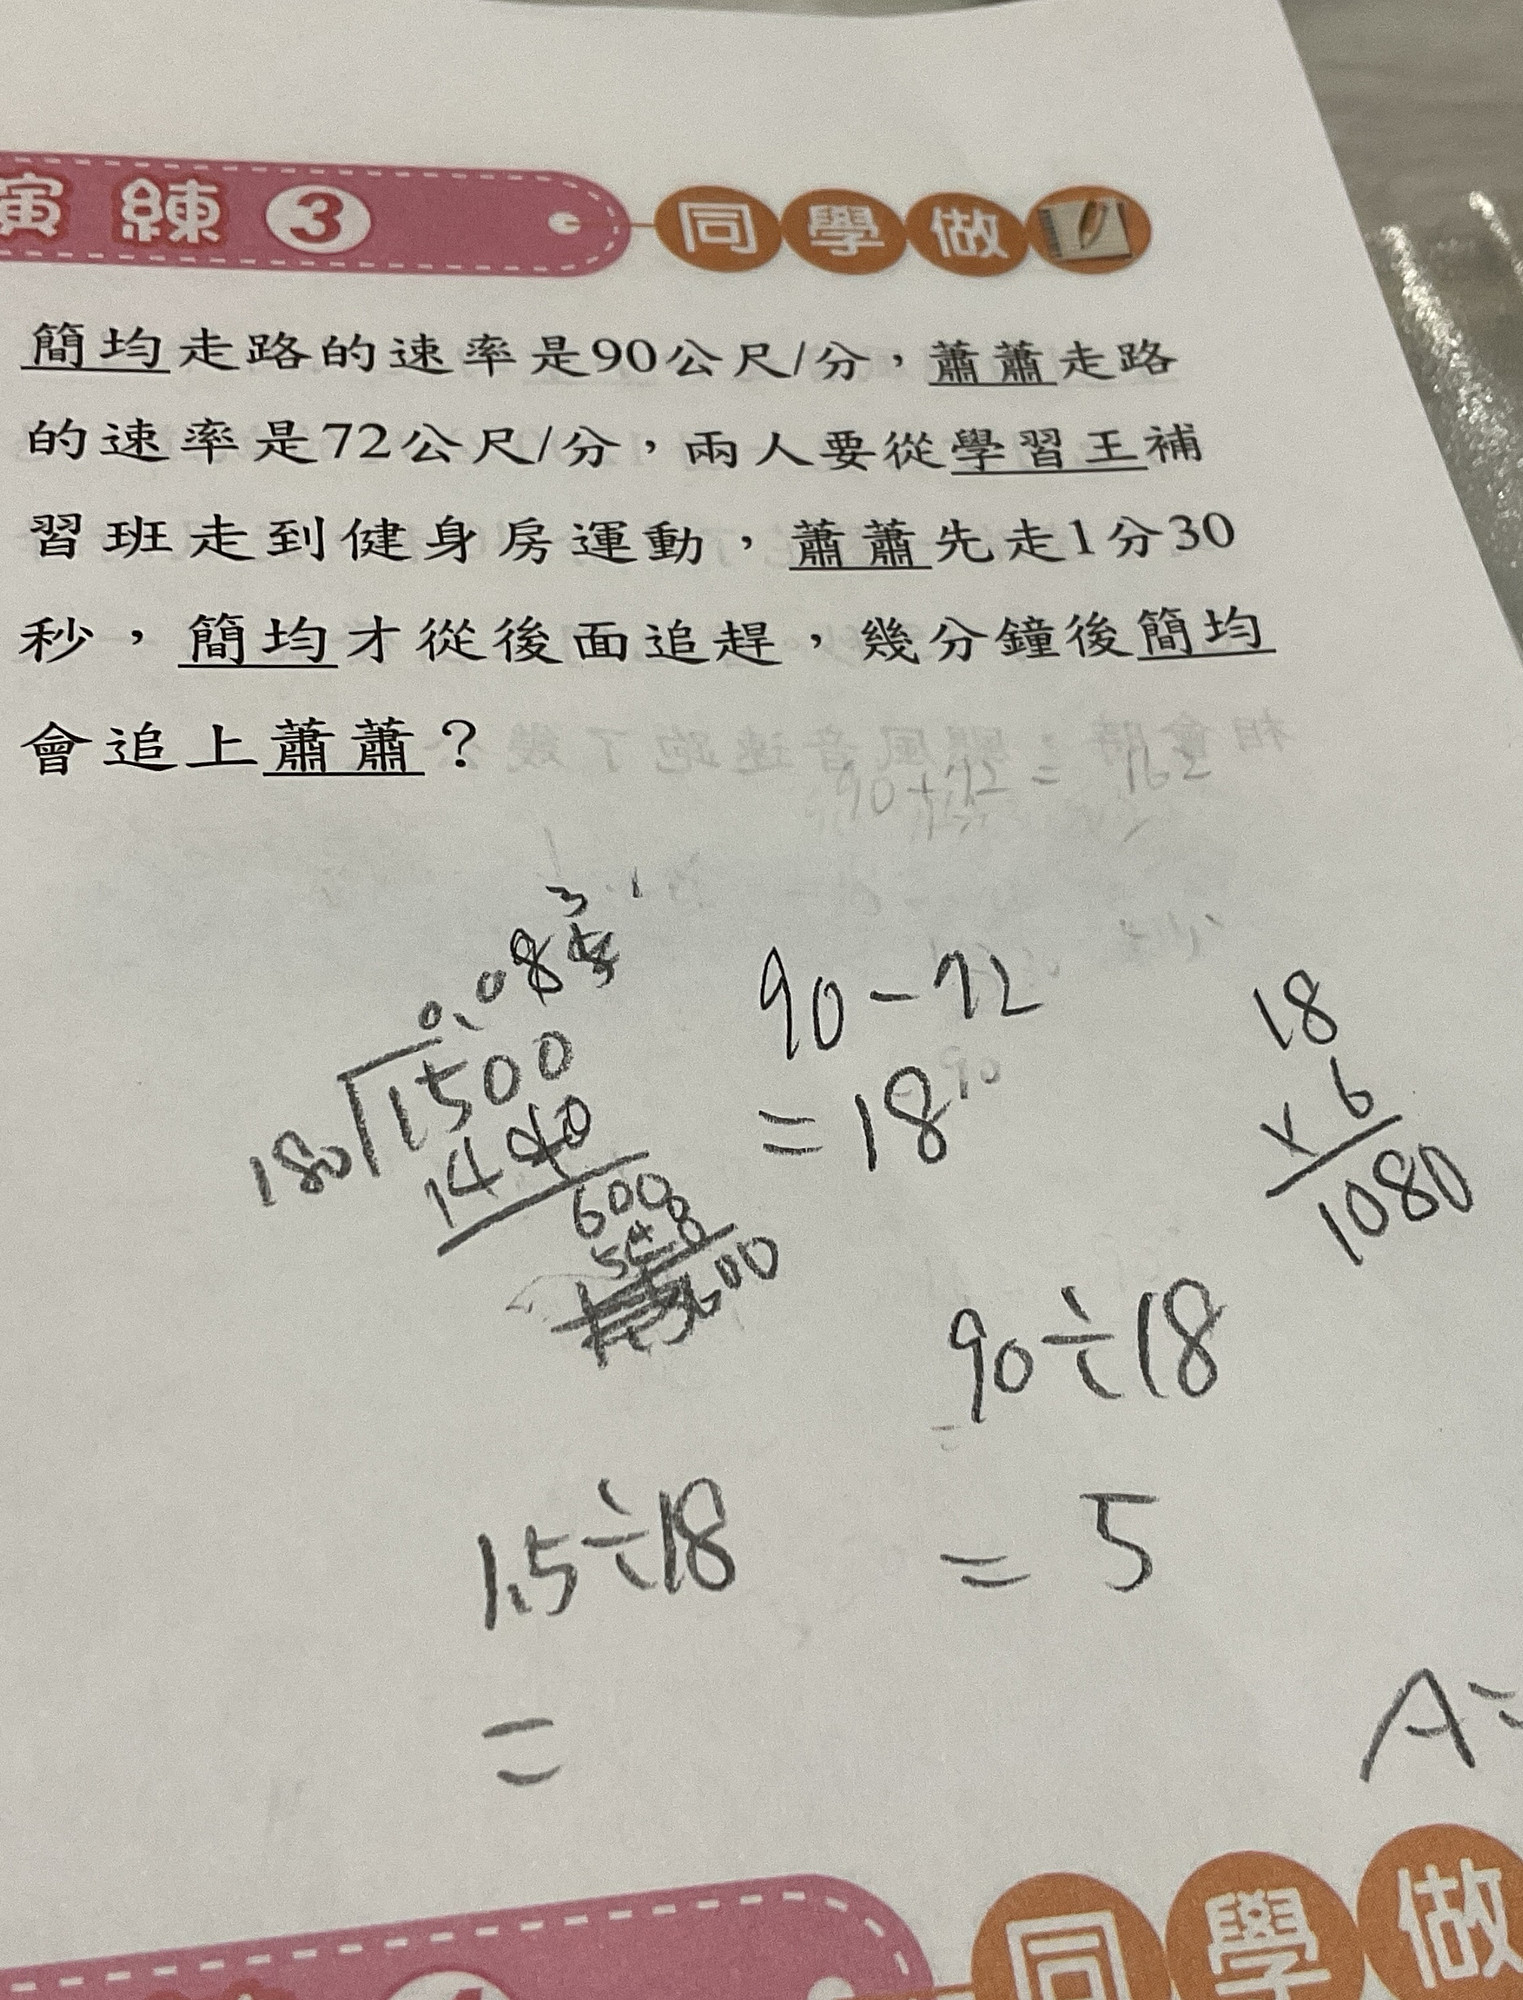 演練3 同學做
簡均走路的速率是90公尺/分，蕭蕭走路
的速率是72公尺/分，兩人要從學習王補
習班走到健身房運動，蕭蕭先走1分30
秒，簡均才從後面追趕，幾分鐘後簡均
會追上蕭蕭？
90+72=162
0.083
180 1500
1440
600
90-72
=18
18
×6
1080
90÷18
=5
1.5÷18
=
A=
同學做